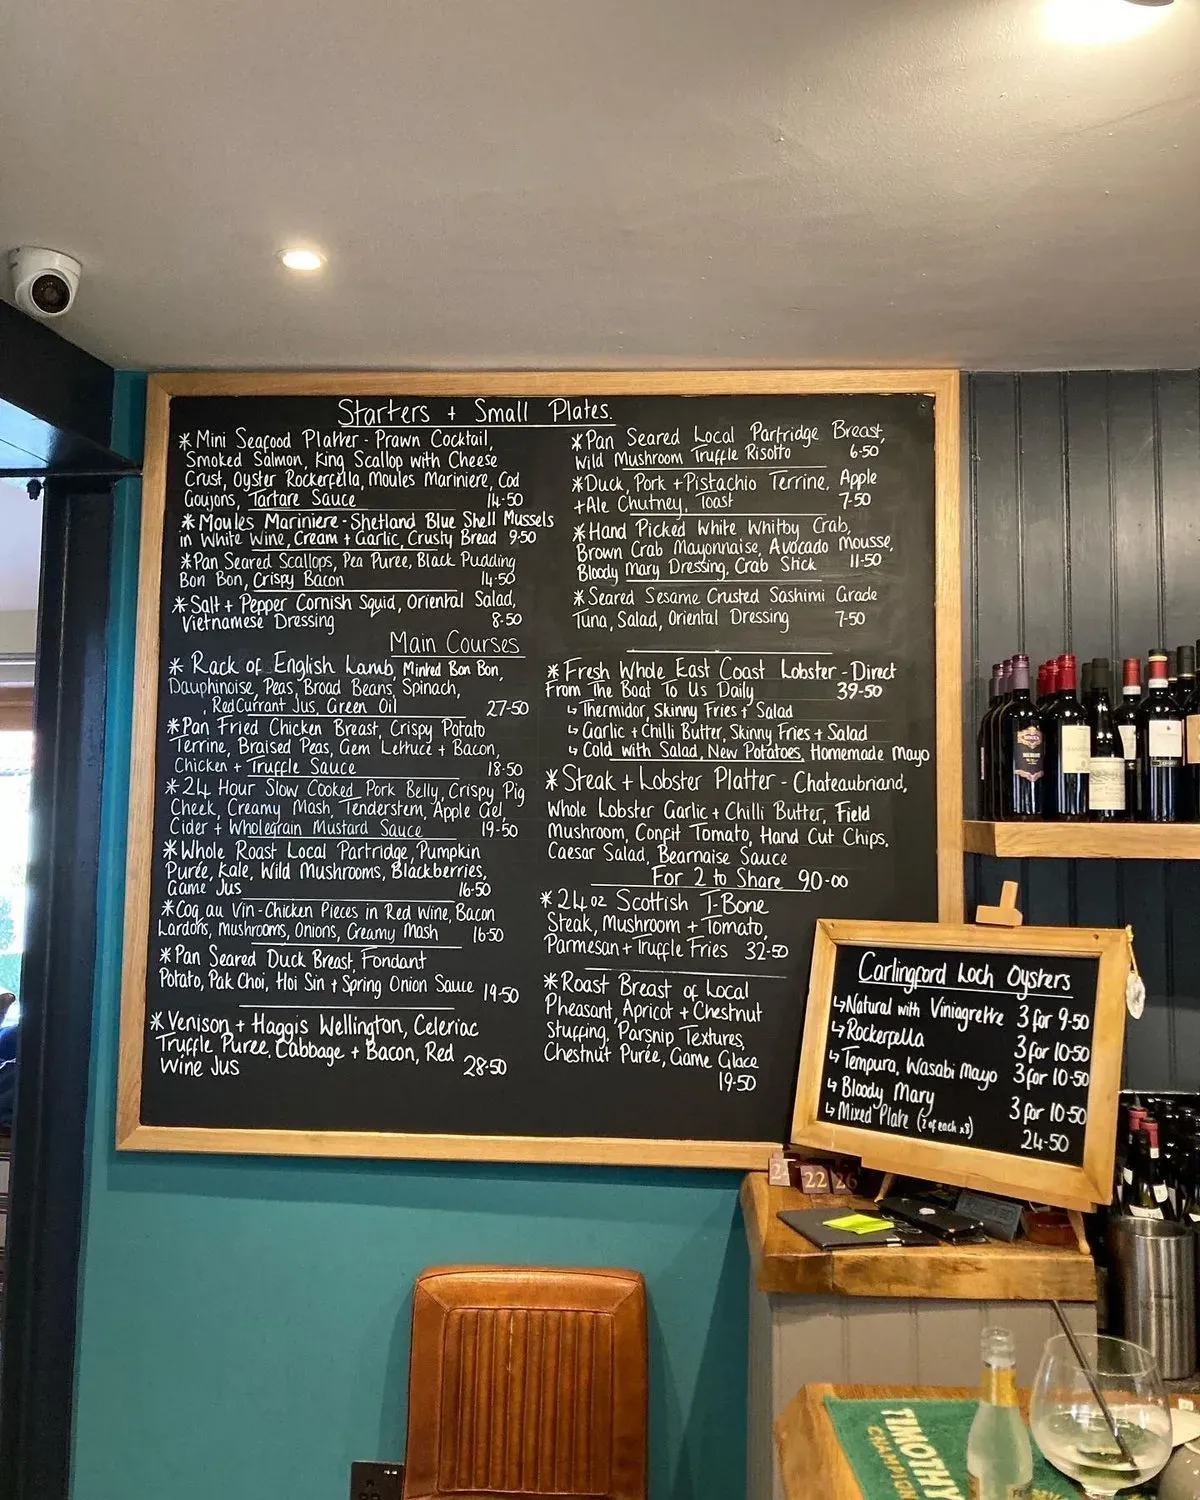 Starters + Small Plates.
*Mini Seafood Platter - Prawn Cocktail,
Smoked Salmon, King Scallop with Cheese
Crust, Oyster Rockerfella, Moules Mariniere, Cod
Goujons, Tartare Sauce 14-50
*Moules Mariniere - Shetland Blue Shell Mussels
in White Wine, Cream + Garlic, Crusty Bread 9-50
*Pan Seared Scallops, Pea Puree, Black Pudding
Bon Bon, Crispy Bacon 14-50
*Salt + Pepper Cornish Squid, Oriental Salad,
Vietnamese Dressing 8-50
*Pan Seared Local Partridge Breast,
Wild Mushroom Truffle Risotto 6-50
*Duck, Pork + Pistachio Terrine, Apple
+Ale Chutney, Toast 7-50
*Hand Picked White Whitby Crab,
Brown Crab Mayonnaise, Avocado Mousse,
Bloody Mary Dressing, Crab Stick 11-50
*Seared Sesame Crusted Sashimi Grade
Tuna, Salad, Oriental Dressing 7-50
Main Courses
*Rack of English Lamb, Minted Bon Bon,
Dauphinoise, Peas, Broad Beans, Spinach,
, RedCurrant Jus, Green Oil 27-50
*Pan Fried Chicken Breast, Crispy Potato
Terrine, Braised Peas, Gem Lettuce + Bacon,
Chicken + Truffle Sauce 18-50
*24 Hour Slow Cooked Pork Belly, Crispy Pig
Cheek, Creamy Mash, Tenderstem, Apple Gel,
Cider + Wholegrain Mustard Sauce 19-50
*Whole Roast Local Partridge, Pumpkin
Purée, Kale, Wild Mushrooms, Blackberries,
Game Jus 16-50
*Coq au Vin - Chicken Pieces in Red Wine, Bacon
Lardons, mushrooms, Onions, Creamy Mash 16-50
*Pan Seared Duck Breast, Fondant
Potato, Pak Choi, Hoi Sin + Spring Onion Sauce 19-50
*Venison + Haggis Wellington, Celeriac
Truffle Puree, Cabbage + Bacon, Red
Wine Jus 28-50
*Fresh Whole East Coast Lobster - Direct
From The Boat To Us Daily 39-50
↳ Thermidor, Skinny Fries + Salad
↳ Garlic + Chilli Butter, Skinny Fries + Salad
↳ Cold with Salad, New Potatoes, Homemade Mayo
*Steak + Lobster Platter - Chateaubriand,
Whole Lobster Garlic + Chilli Butter, Field
Mushroom, Confit Tomato, Hand Cut Chips,
Caesar Salad, Bearnaise Sauce
For 2 to Share 90-00
*24oz Scottish T-Bone
Steak, Mushroom + Tomato,
Parmesan + Truffle Fries 32-50
*Roast Breast of Local
Pheasant, Apricot + Chestnut
Stuffing, Parsnip Textures,
Chestnut Purée, Game Glace
19-50
Carlingford Loch Oysters
↳ Natural with Viniagrette 3 for 9-50
↳ Rockerfella 3 for 10-50
↳ Tempura, Wasabi Mayo 3 for 10-50
↳ Bloody Mary 3 for 10-50
↳ Mixed Plate (2 of each x8) 24-50
22
26
TIMOTHY